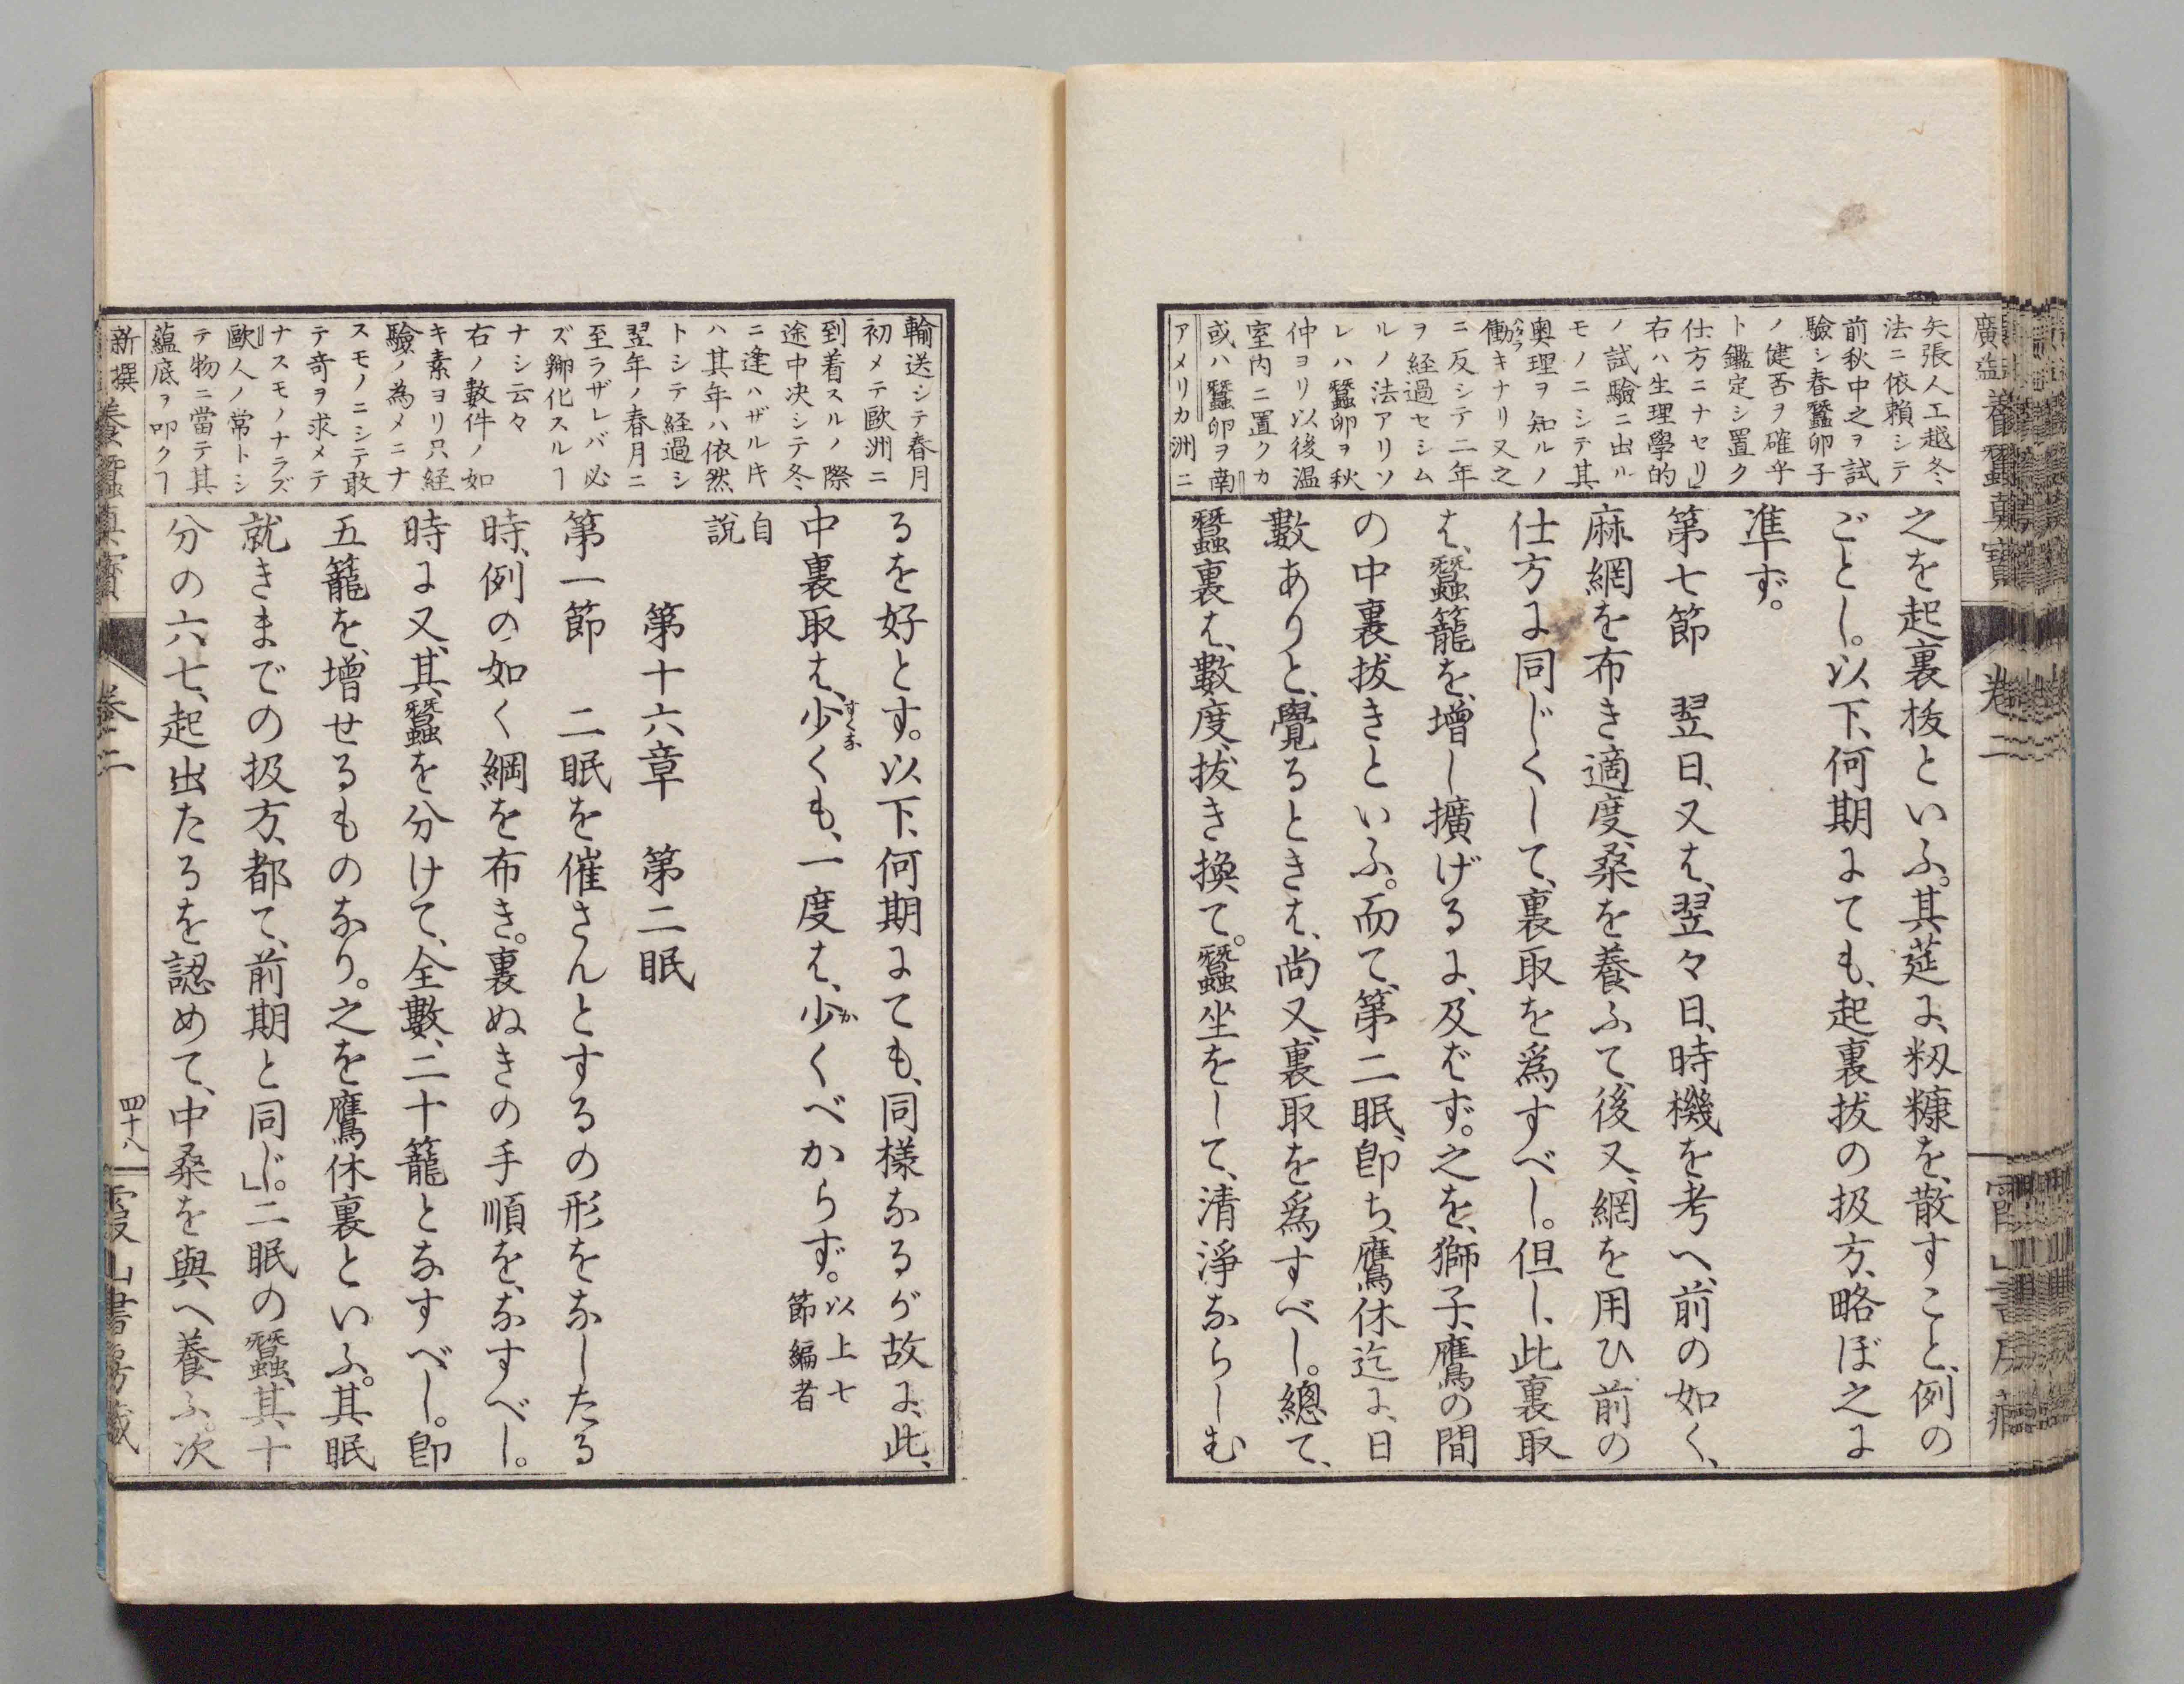 矢張人工越冬
法ニ依頼シテ
前秋中之ヲ試
驗シ春蠶卵子
ノ健否ヲ確乎
ト鑑定シ置ク
仕方ニナセリ」
右ハ生理學的
ノ試驗ニ出ル
モノニシテ其
奥理ヲ知ルノ
働キナリ又之
ニ反シテ二年
ヲ経過セシム
ルノ法アリソ
レハ蠶卵ヲ秋
仲ヨリ以後温
室内ニ置クカ
或ハ蠶卵ヲ南
アメリカ洲ニ
之を起裏抜といふ。其莚に、籾糠を、散すこと、例の
ごとし。以下、何期にても、起裏拔の扱方、略ぼ之に
準ず。
第七節　翌日、又は、翌々日、時機を考へ、前の如く、
麻網を布き適度、桑を養ふて、後又、網を用ひ、前の
仕方に同じくして、裏取を爲すべし。但し、此裏取
は、蠶籠を、増し擴げるに、及ばず。之を、獅子、鷹の間
の中裏拔きといふ。而て、第二眠、卽ち、鷹休迄に、日
數ありと、覺るときは、尚又、裏取を爲すべし。總て、
蠶裏は、數度、拔き換て。蠶坐をして、清淨ならしむ
輸送シテ春月
初メテ歐洲ニ
到着スルノ際
途中决シテ冬
ニ逢ハザル片
ハ其年ハ依然
トシテ経過シ
翌年ノ春月ニ
至ラザレバ必
ズ孵化スルヿ
ナシ云々
右ノ數件ノ如
キ素ヨリ只経
驗ノ為メニナ
スモノニシテ敢
テ奇ヲ求メテ
ナスモノナラズ
歐人ノ常トシ
テ物ニ當テ其
蘊底ヲ叩クヿ
るを好とす。以下、何期にても、同樣なるが故に、此、
中裏取は、少くも、一度は、少くべからず。以上七節編者
自説
第十六章　第二眠
第一節　二眠を催さんとするの形をなしたる
時、例の如く網を布き。裏ぬきの手順を、なすべし。
時に又、其蠶を分けて、全數、二十籠となすべし。卽
五籠を、増せるものなり。之を鷹休裏といふ。其眠
就きまでの扱方、都て、前期と同じ」。二眠の蠶、其、十
分の六七、起出たるを認めて、中桑を與へ養ふ。次
新撰養蠶眞寶　卷二　四十八